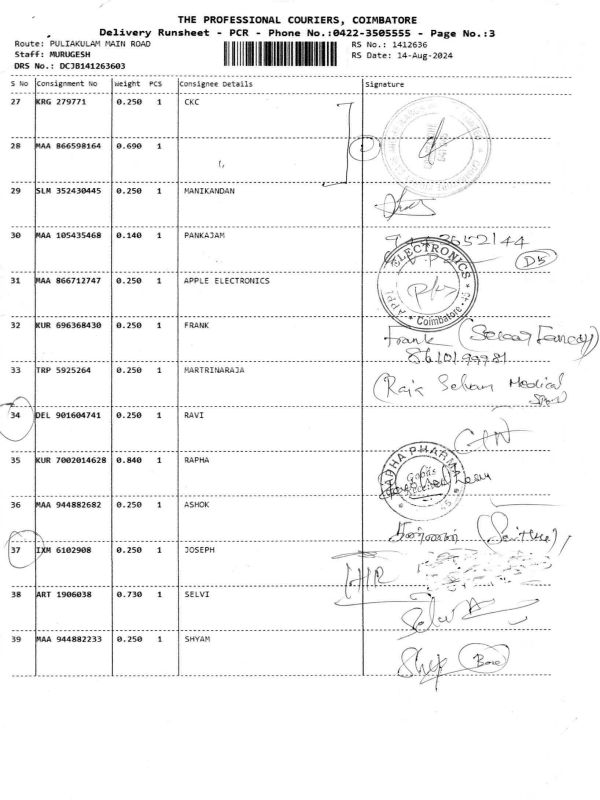 THE PROFESSIONAL COURIERS, COIMBATORE
Delivery Runsheet - PCR - Phone No.:0422-3505555 - Page No.:3
Route: PULIAKULAM MAIN ROAD RS No.: 1412636
Staff: MURUGESH RS Date: 14-Aug-2024
DRS No.: DCJB141263603
S No Consignment No Weight PCS Consignee Details Signature
27 KRG 279771 0.250 1 CKC
28 MAA 866598164 0.690 1
29 SLM 352430445 0.250 1 MANIKANDAN
30 MAA 105435468 0.140 1 PANKAJAM
D5
31 MAA 866712747 0.250 1 APPLE ELECTRONICS
ELECTRONICS
Coimbatore
32 KUR 696368430 0.250 1 FRANK
Frank
33 TRP 5925264 0.250 1 MARTRINARAJA
(Raja Selvam Medical
34 DEL 901604741 0.250 1 RAVI
35 KUR 7002014628 0.840 1 RAPHA
PHARMA
36 MAA 944882682 0.250 1 ASHOK
37 IXM 6102908 0.250 1 JOSEPH
38 ART 1906038 0.730 1 SELVI
39 MAA 944882233 0.250 1 SHYAM